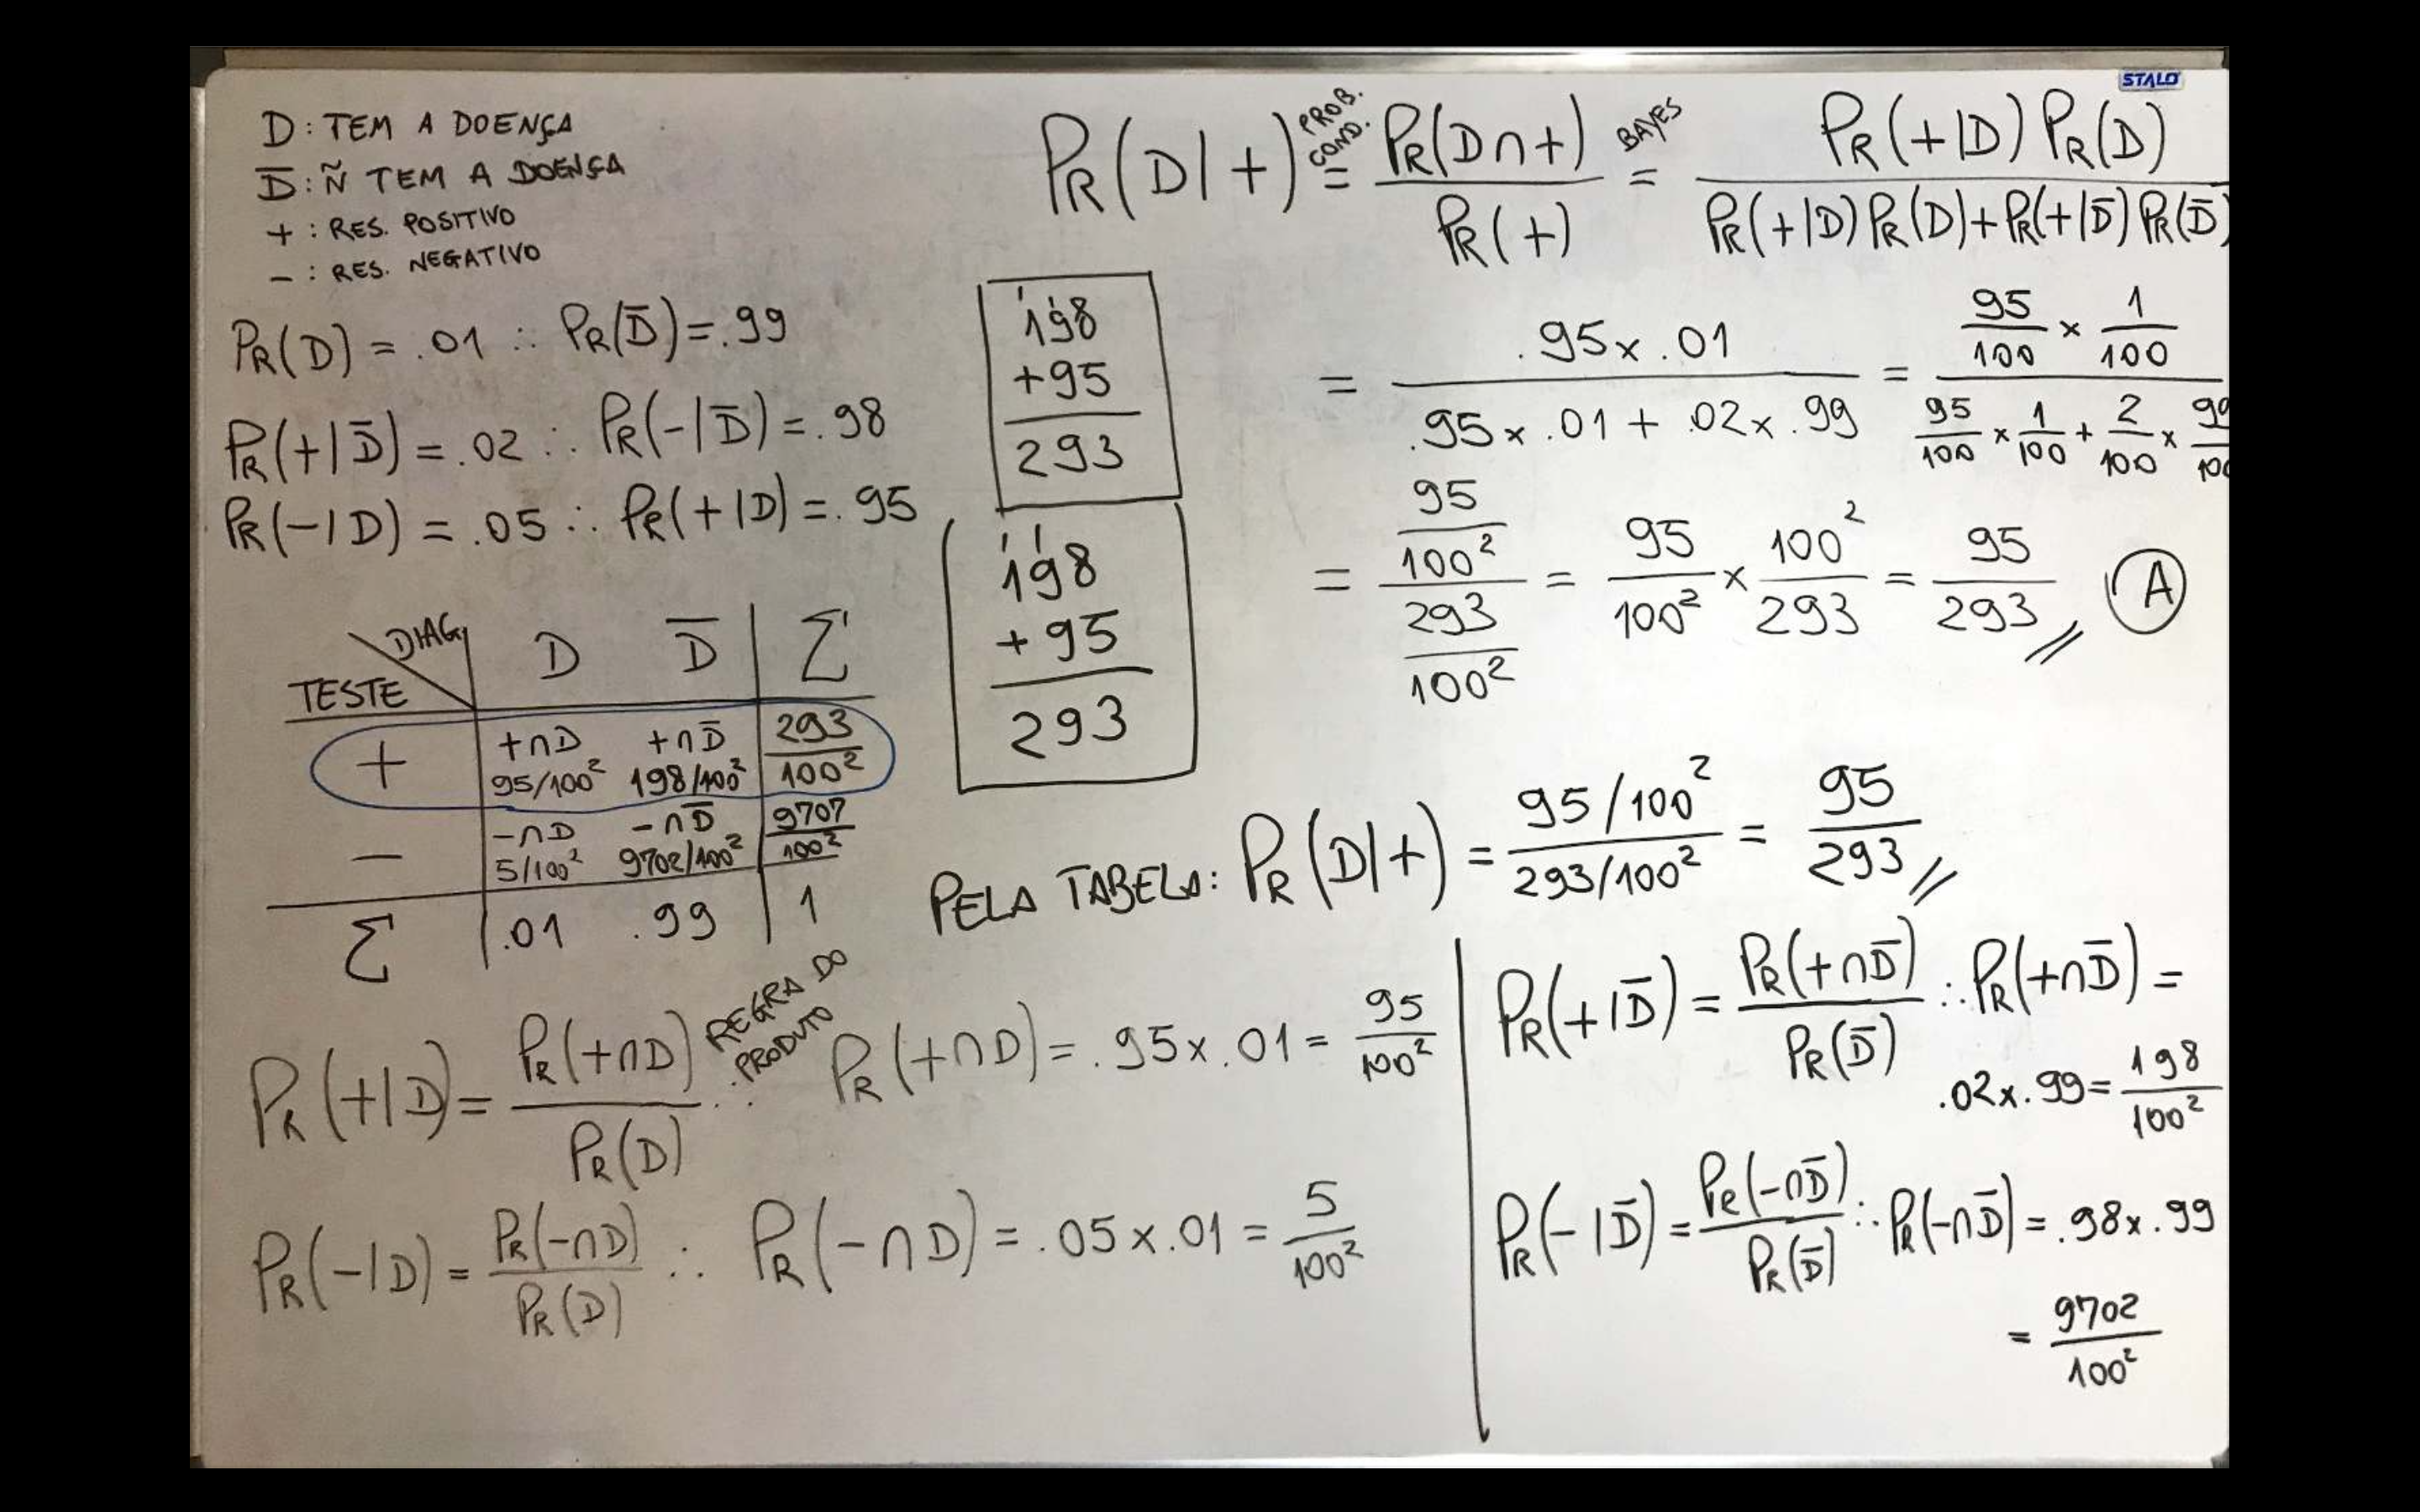 STALO
D: TEM A DOENÇA
D̅: Ñ TEM A DOENÇA
+: RES. POSITIVO
-: RES. NEGATIVO
PR(D) = .01 ∴ PR(D̅) = .99
PR(+|D̅) = .02 ∴ PR(-|D̅) = .98
PR(-|D) = .05 ∴ PR(+|D) = .95
198
+95
293
198
+95
293
PR(D|+) PROB. COND. = PR(D∩+)/PR(+) BAYES = PR(+|D)PR(D)/PR(+|D)PR(D)+PR(+|D̅)PR(D̅)
= .95 x .01/.95 x .01 + .02 x .99 = 95/100 x 1/100 / 95/100 x 1/100 + 2/100 x 99/100
= 95/100² / 293/100² = 95/100² x 100²/293 = 95/293 // A
DIAG. D D̅ Σ
TESTE
+ +∩D +∩D̅ 293/100²
95/100² 198/100²
- -∩D -∩D̅ 9707/100²
5/100² 9702/100²
Σ .01 .99 1
PELA TABELA: PR(D|+) = 95/100² / 293/100² = 95/293 //
PR(+|D) = PR(+∩D)/PR(D) REGRA DO PRODUTO ∴ PR(+∩D) = .95 x .01 = 95/100²
PR(-|D) = PR(-∩D)/PR(D) ∴ PR(-∩D) = .05 x .01 = 5/100²
PR(+|D̅) = PR(+∩D̅)/PR(D̅) ∴ PR(+∩D̅) =
.02 x .99 = 198/100²
PR(-|D̅) = PR(-∩D̅)/PR(D̅) ∴ PR(-∩D̅) = .98 x .99
= 9702/100²